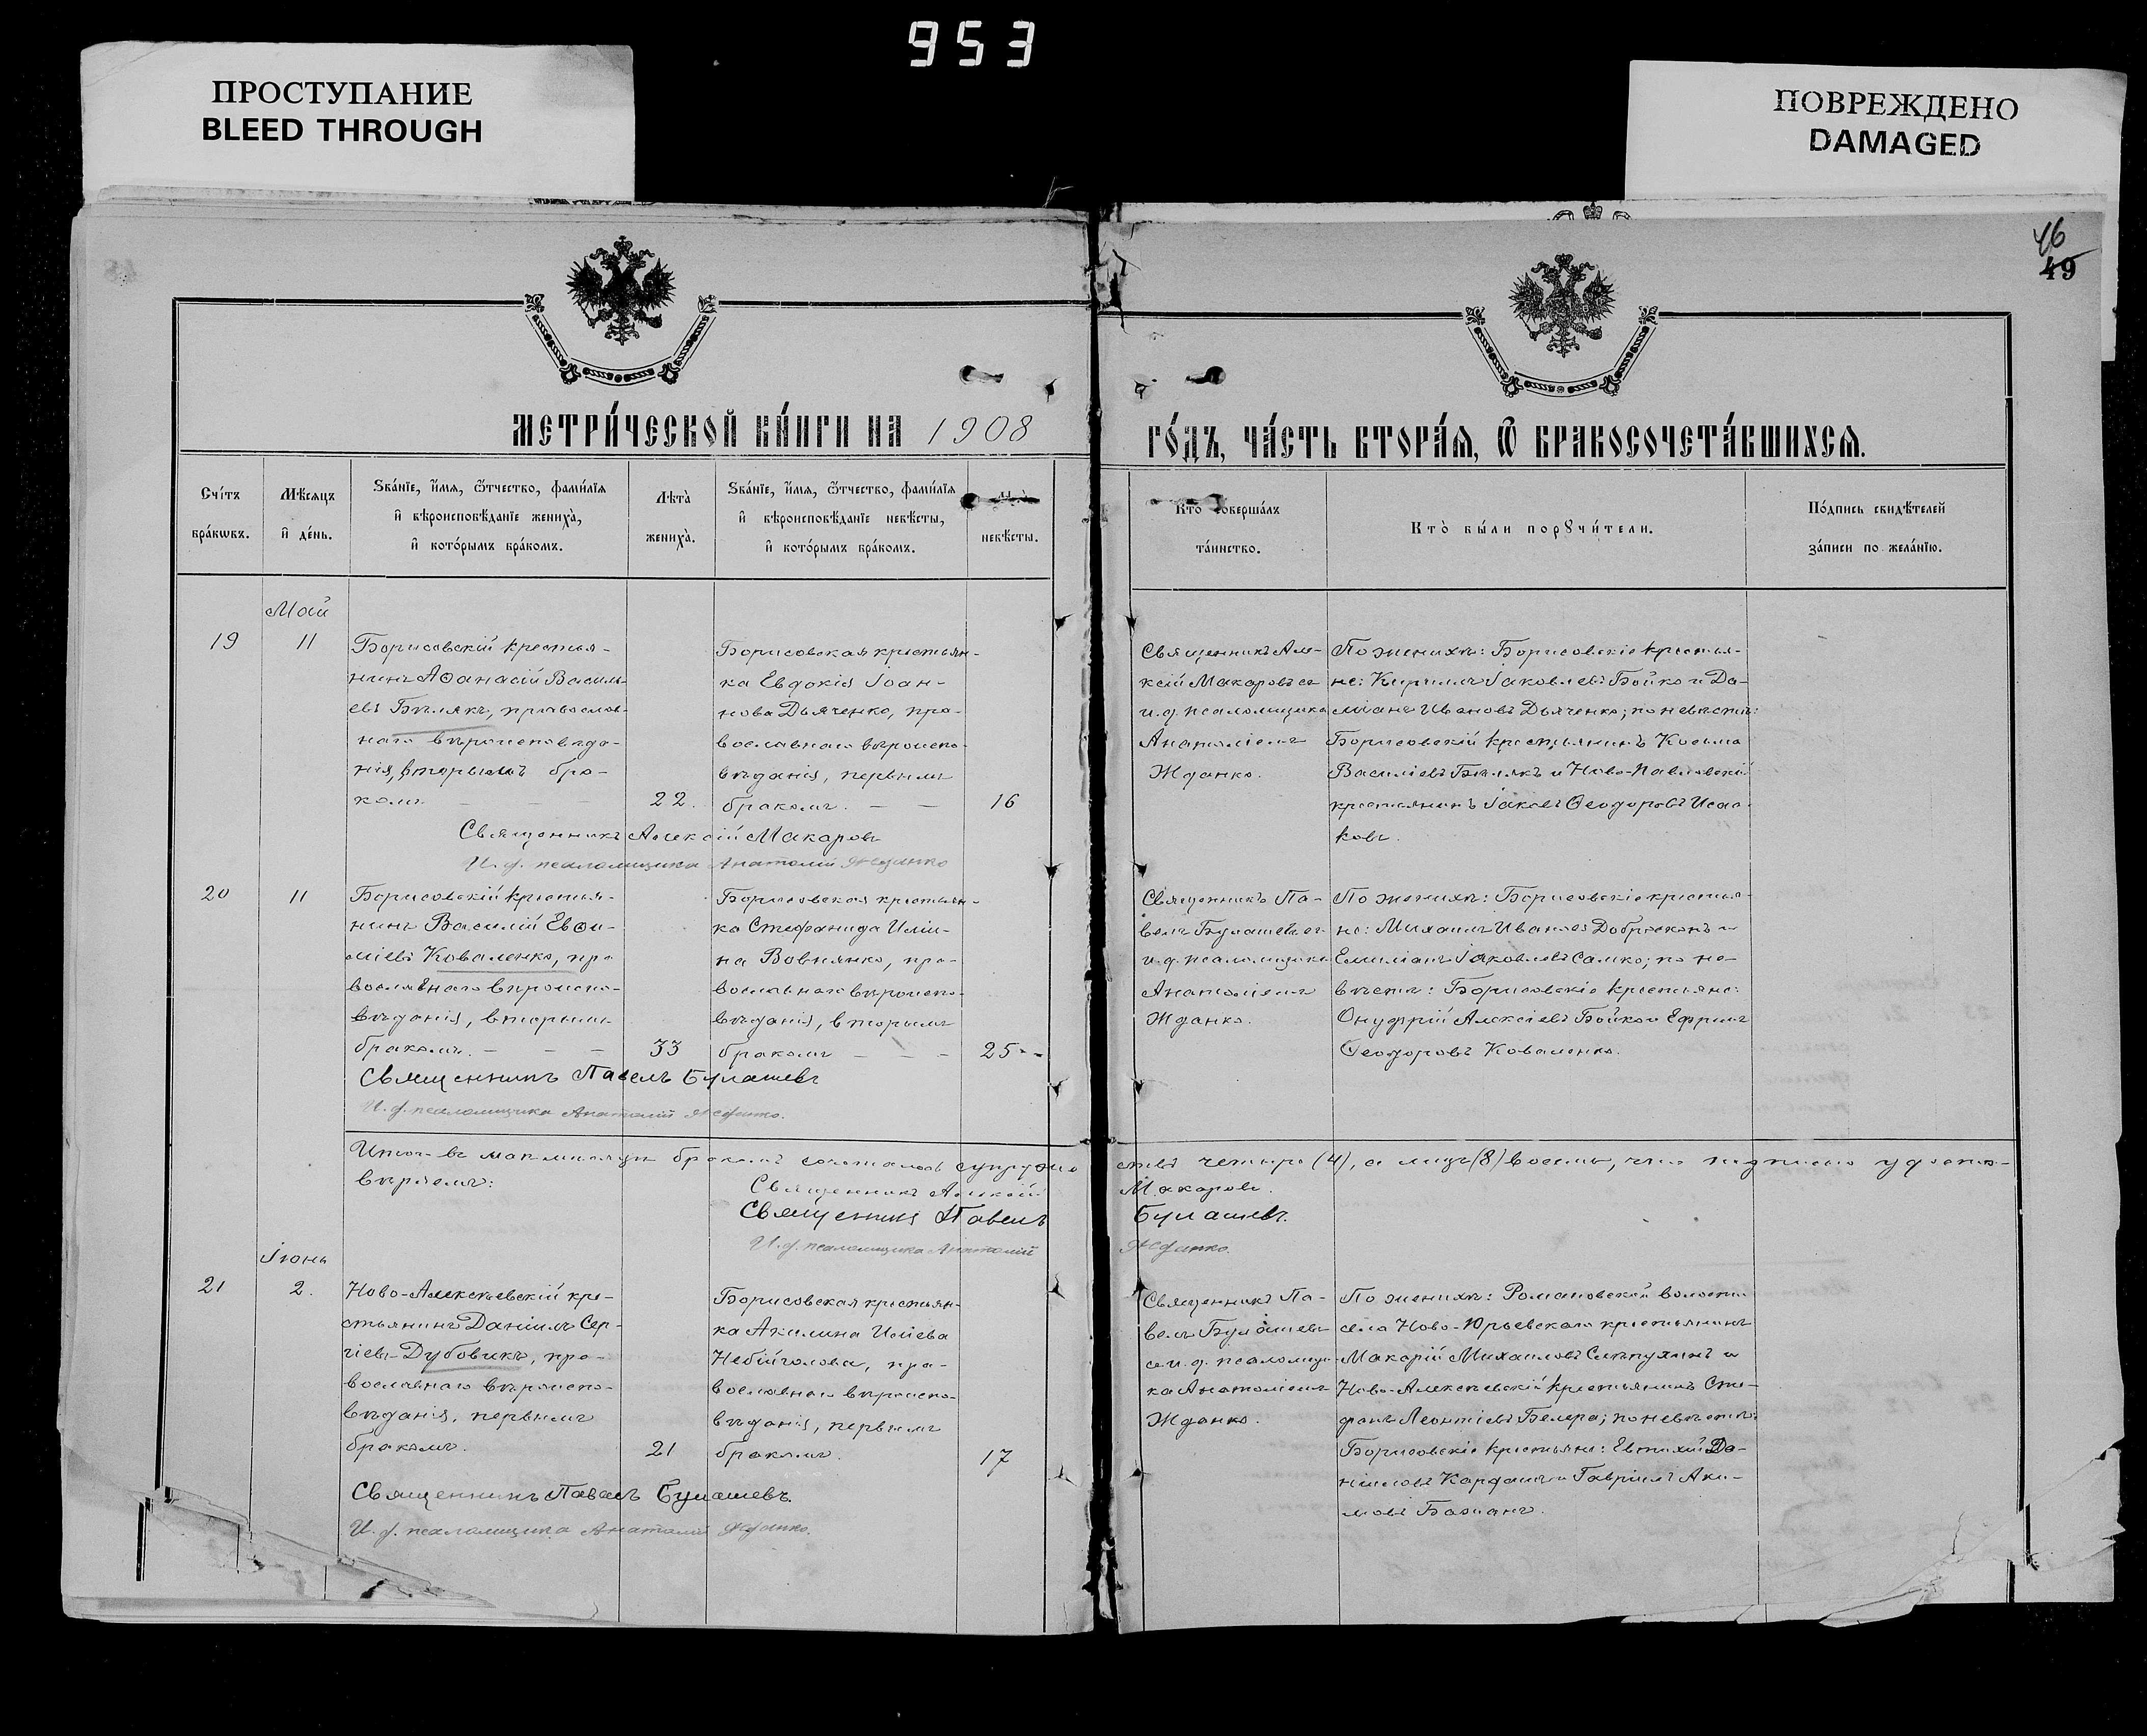 953
ПРОСТУПАНИЕ
BLEED THROUGH
ПОВРЕЖДЕНО
DAMAGED
46
49
МЕТРИ́ЧЕСКОЙ КНИ́ГИ НА 1908
ГО́ДЪ, ЧА́СТЬ ВТОРА́Я, Ѿ БРАКОСОЧЕТА́ВШИХСЯ.
Сче́тъ
бра́кѡвъ.
Мѣ́сяцъ
и҆ де́нь.
Ѕва́нїе, и҆́мя, ѻ҆́тчество, фами́лїя
и҆ вѣроисповѣ́данїе жениха̀,
и҆ кото́рымъ бра́комъ.
Лѣта̀
жениха̀.
Ѕва́нїе, и҆́мя, ѻ҆́тчество, фами́лїя
и҆ вѣроисповѣ́данїе невѣ́сты,
и҆ кото́рымъ бра́комъ.
невѣ́сты.
Кто̀ соверша́лъ
та́инство.
Кто̀ бы́ли порꙋчи́тели.
По́дпись свидѣ́телей
за́писи по жела́нїю.
Май
19
11
Борисовскій крестья-
нинъ Аѳанасій Василь-
евъ Бѣлякъ, православ-
наго вѣроисповѣда-
нія, вторымъ бра-
комъ. – – –
22.
Борисовская крестьян-
ка Евдокія Іоан-
нова Дьяченко, пра-
вославнаго вѣроиспо-
вѣданія, первымъ
бракомъ. – –
16
Священникъ Але-
ксій Макаровъ съ
и. д. псаломщика
Анатоліемъ
Жданко.
По женихѣ: Борисовскіе крестья-
не: Кириллъ Іаковлевъ Бойко и Да-
міанъ Ивановъ Дьяченко; по невѣстѣ:
Борисовскій крестьянинъ Косьма
Василіевъ Бѣлякъ и Ново-Павловскій
крестьянинъ Іаковъ Ѳеодоровъ Исаа-
ковъ.
Священникъ Алексій Макаровъ
И. д. псаломщика Анатолій Жданко
20
11
Борисовскій крестья-
нинъ Василій Евѳи-
міевъ Коваленко, пра-
вославнаго вѣроиспо-
вѣданія, вторымъ
бракомъ. – – –
33
Борисовская крестьян-
ка Стефанида Иліи-
на Вовнянко, пра-
вославнаго вѣроиспо-
вѣданія, вторымъ
бракомъ – – –
25
Священникъ Па-
велъ Булашевъ съ
и. д. псаломщика
Анатоліемъ
Жданко.
По женихѣ: Борисовскіе крестья-
не: Михаилъ Ивановъ и
Емиліанъ Іаковлевъ Салко; по не-
вѣстѣ: Борисовскіе крестьяне:
Онуфрій Алексіевъ Бойко и Ефремъ
Ѳеодоровъ Коваленко.
Священникъ Павелъ Булашевъ
И. д. псаломщика Анатолій Жданко.
Итого въ маѣ мѣсяцѣ бракомъ сочеталось супруже
ствъ четыре (4), а лицъ (8) восемь, что подписью удосто-
вѣряемъ:
Священникъ Алексій
Макаровъ.
Священникъ Павелъ
Булашевъ.
И. д. псаломщика Анатолій
Жданко.
Іюнь
21
2.
Ново-Алексѣевскій кре-
стьянинъ Даніилъ Сер-
гіевъ Дубовикъ, пра-
вославнаго вѣроиспо-
вѣданія, первымъ
бракомъ.
21
Борисовская крестьян-
ка Акилина Иліева
Небійголова, пра-
вославнаго вѣроиспо-
вѣданія, первымъ
бракомъ.
17
Священникъ Па-
велъ Булашевъ
съ и. д. псаломщи-
ка Анатоліемъ
Жданко.
По женихѣ: Романовской волости
села Ново-Юрьевскаго крестьянинъ
Макарій Михаиловъ Слѣпухинъ и
Ново-Алексѣевскій крестьянинъ Сте-
фанъ Леонтіевъ Белера; по невѣстѣ:
Борисовскіе крестьяне: Евтихій Да-
ніиловъ Карданъ и Гавріилъ Аки-
мовъ Баштанъ.
Священникъ Павелъ Булашевъ.
И. д. псаломщика Анатолій Жданко.